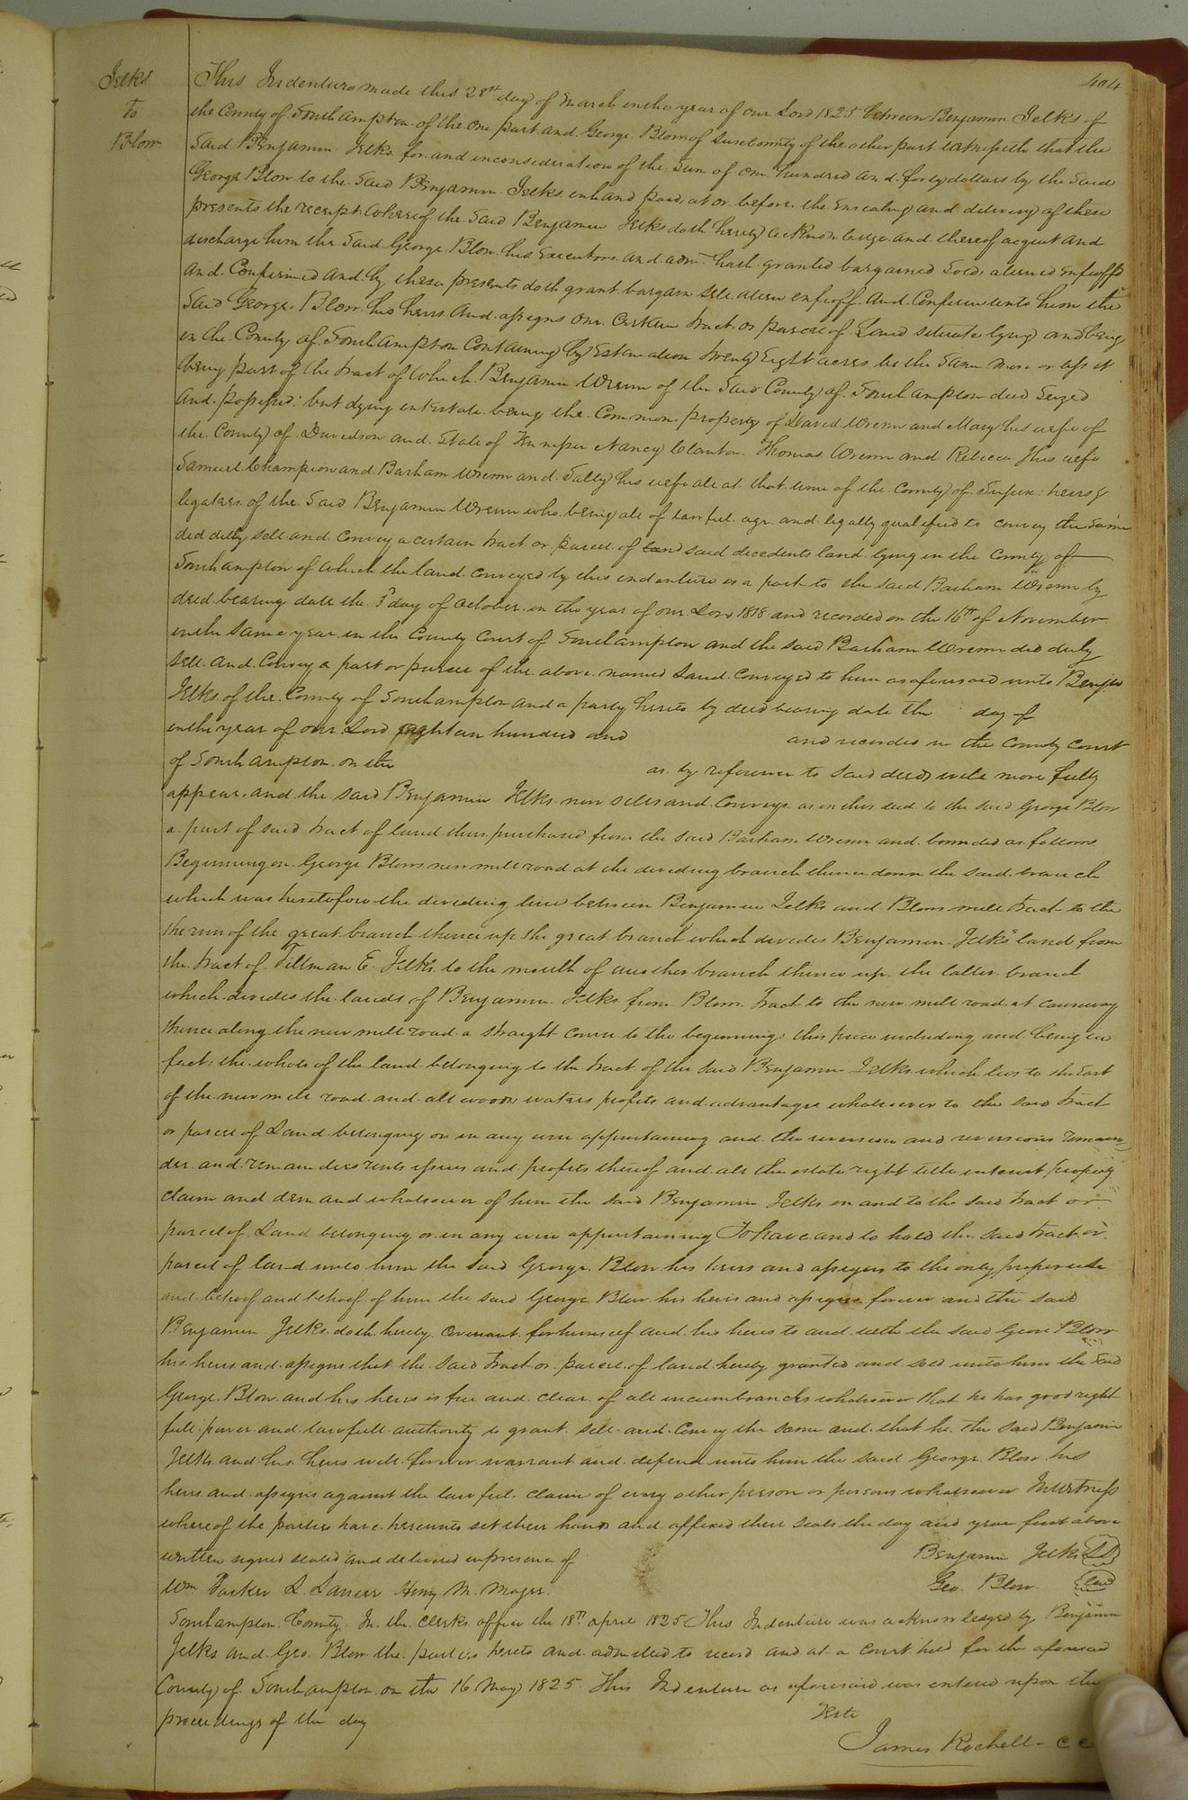 404
Jelks
to
Blow
This Indenture made this 28th day of March in the year of our Lord 1825 between Benjamin Jelks of
the County of Southampton of the one part and George Blow of Sussex County of the other part witnesseth that the
said Benjamin Jelks for and in consideration of the sum of one hundred and forty dollars by the said
George Blow to the said Benjamin Jelks in hand paid, at or before the ensealing and delivery of these
presents the receipt whereof the said Benjamin Jelks doth hereby acknowledge and thereof acquit and
discharge him the said George Blow his Executors and adm. hath granted bargained sold aliened enfeoffd
and Confirmed and by these presents doth grant bargain sell alien enfeoff and Confirm unto him the
said George Blow his heirs and assigns one certain tract or parcel of Land situate lying and being
in the County of Southampton Containing by Estamation twenty Eight acres be the same more or less it
being part of the tract of which Benjamin Wrenn of the said County of Southampton died seized
and possessed: but dying intestate being the Common property of David Wrenn and Mary his wife of
the County of Davidson and State of Tennessee Nancy Clanton Thomas Wrenn and Rebecca his wife
Samuel Champion and Barham Wrenn and Sally his wife all at that time of the County of Sussex: heirs &
legatees of the said Benjamin Wrenn who being all of lawful age and legally qualified to convey the same
did duly sell and convey a certain tract or parcel of land said decedents land lying in the County of
Southampton of which the land conveyed by this indenture is a part to the said Barham Wrenn by
deed bearing date the day of October in the year of our Lord 1818 and recorded on the 16th of November
in the same year in the County Court of Southampton and the said Barham Wrenn did duly
sell and Convey a part or parcel of the above named Land conveyed to him as aforesaid unto Benja
Jelks of the County of Southampton and a party hereto by deed bearing date the day of
in the year of our Lord eighteen hundred and and recorded in the County Court
of Southampton on the as by reference to said deeds will more fully
appear, and the said Benjamin Jelks now sells and Conveys as in this deed to the said George Blow
a part of said tract of land thus purchased from the said Barham Wrenn and bounded as follows
Beginning on George Blows new mill road at the dividing branch thence down the said branch
which was heretofore the dividing line between Benjamin Jelks and Blows mill tract to the
the run of the great branch thence up the great branch which divides Benjamin Jelks' land from
the tract of Tillman E. Jelks to the mouth of another branch thence up the latter branch
which divides the lands of Benjamin Jelks from Blows Tract to the new mill road at causeway
thence along the new mill road a straight course to the beginning: this piece including and being in
fact the whole of the land belonging to the tract of the said Benjamin Jelks which lies to the East
of the new mill road and all woods waters profits and advantages whatsoever to the said tract
or parcel of Land belonging or in any wise appertaining and the reversion and reversions remain
der and remainders rents issues and profits thereof and all the estate right title interest property
claim and demand whatsoever of him the said Benjamin Jelks on and to the said tract or
parcel of Land belonging or in any wise appertaining To have and to hold the said tract or
parcel of land unto him the said George Blow his heirs and assigns to the only proper use
and behoof and behoof of him the said George Blow his heirs and assigns forever and the said
Benjamin Jelks doth hereby Covenant for himself and his heirs to and with the said Geore Blow
his heirs and assigns that the said tract or parcel of land hereby granted and sold unto him the said
George Blow and his heirs is free and clear of all incumbrances whatsoever that he has good right
full power and lawfull authority to grant sell and convey the same and that he the said Benjamin
Jelks and his heirs will forever warrant and defend unto him the said George Blow his
heirs and assigns against the lawful claim of every other person or persons whatsoever In witness
whereof the parties have hereunto set their hands and affixed their seals the day and year first above
written signed sealed and delivered in presence of Benjamin Jelks LS
Wm Parker L. Lanier Henry M. Moyes. Geo. Blow. Seal
Southampton County In the clerks office the 18th april 1825 This Indenture was acknowledged by Benjamin
Jelks and Geo. Blow the parties hereto and admitted to record and at a court held for the aforesaid
County of Southampton on the 16 May 1825 This Indenture as aforesaid was entered upon the
proceedings of the day Teste
James Rochelle C C